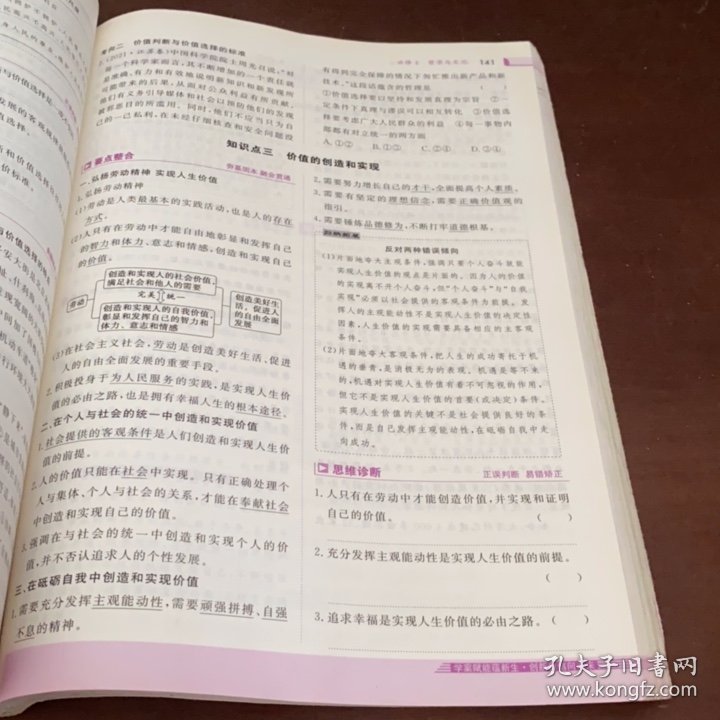 考向二 价值判断与价值选择的标准
141
知识点三 价值的创造和实现
要点整合
夯基固本 融会贯通
一、弘扬劳动精神 实现人生价值
1.弘扬劳动精神
(1)劳动是人类最基本的实践活动，也是人的存在
方式。
(2)人只有在劳动中才能自由地彰显和发挥自己
的智力和体力、意志和情感，创造和实现自己
的价值。
劳动
创造和实现人的社会价值，
满足社会和他人的需要
完美 统一
创造和实现人的自我价值，
彰显和发挥自己的智力和
体力、意志和情感
创造美好生
活、促进人
的自由全面
发展
(3)在社会主义社会，劳动是创造美好生活、促进
人的自由全面发展的重要手段。
2.积极投身于为人民服务的实践，是实现人生价
值的必由之路，也是拥有幸福人生的根本途径。
二、在个人与社会的统一中创造和实现价值
1.社会提供的客观条件是人们创造和实现人生价
值的前提。
2.人的价值只能在社会中实现。只有正确处理个
人与集体、个人与社会的关系，才能在奉献社会
中创造和实现自己的价值。
3.强调在与社会的统一中创造和实现个人的价
值，并不否认追求人的个性发展。
三、在砥砺自我中创造和实现价值
1.需要充分发挥主观能动性，需要顽强拼搏、自强
不息的精神。
有得到完全保障的情况下匆忙推出新产品和新
技术。”这段话蕴含的哲理是 ( )
①价值选择要以坚持和发展真理为宗旨 ②一
定条件下真理与谬误可以相互转化 ③价值选
择要考虑广大人民群众的利益 ④每一事物内
部都有对立统一的两方面
A.①② B.①④ C.②③ D.③④
2.需要努力增长自己的才干，全面提高个人素质。
3.需要有坚定的理想信念，需要正确价值观的
指引。
4.需要锤炼品德修为，不断打牢道德根基。
归纳拓展
反对两种错误倾向
(1)片面地夸大主观条件，强调只要个人奋斗就能
实现人生价值的观点是片面的。因为人的价值
的实现离不开个人奋斗，但“个人奋斗”与“自我
实现”必须以社会提供的客观条件为前提。发挥
人的主观能动性不是实现人生价值的决定性
因素，人生价值的实现需要具备相应的主客观
条件。
(2)片面地夸大客观条件，把人生的成功寄托于机
遇的垂青，是消极无为的表现。机遇是等不来
的，机遇对实现人生价值有着不可忽视的作用，
但它不是实现人生价值的首要(或决定)条件。
实现人生价值的关键不是社会提供良好的条
件，而是自己发挥主观能动性，在砥砺自我中走
向成功。
思维诊断
正误判断 易错矫正
1.人只有在劳动中才能创造价值，并实现和证明
自己的价值。 ( )
2.充分发挥主观能动性是实现人生价值的前提。
( )
3.追求幸福是实现人生价值的必由之路。( )
孔夫子旧书网
www.kongfz.com